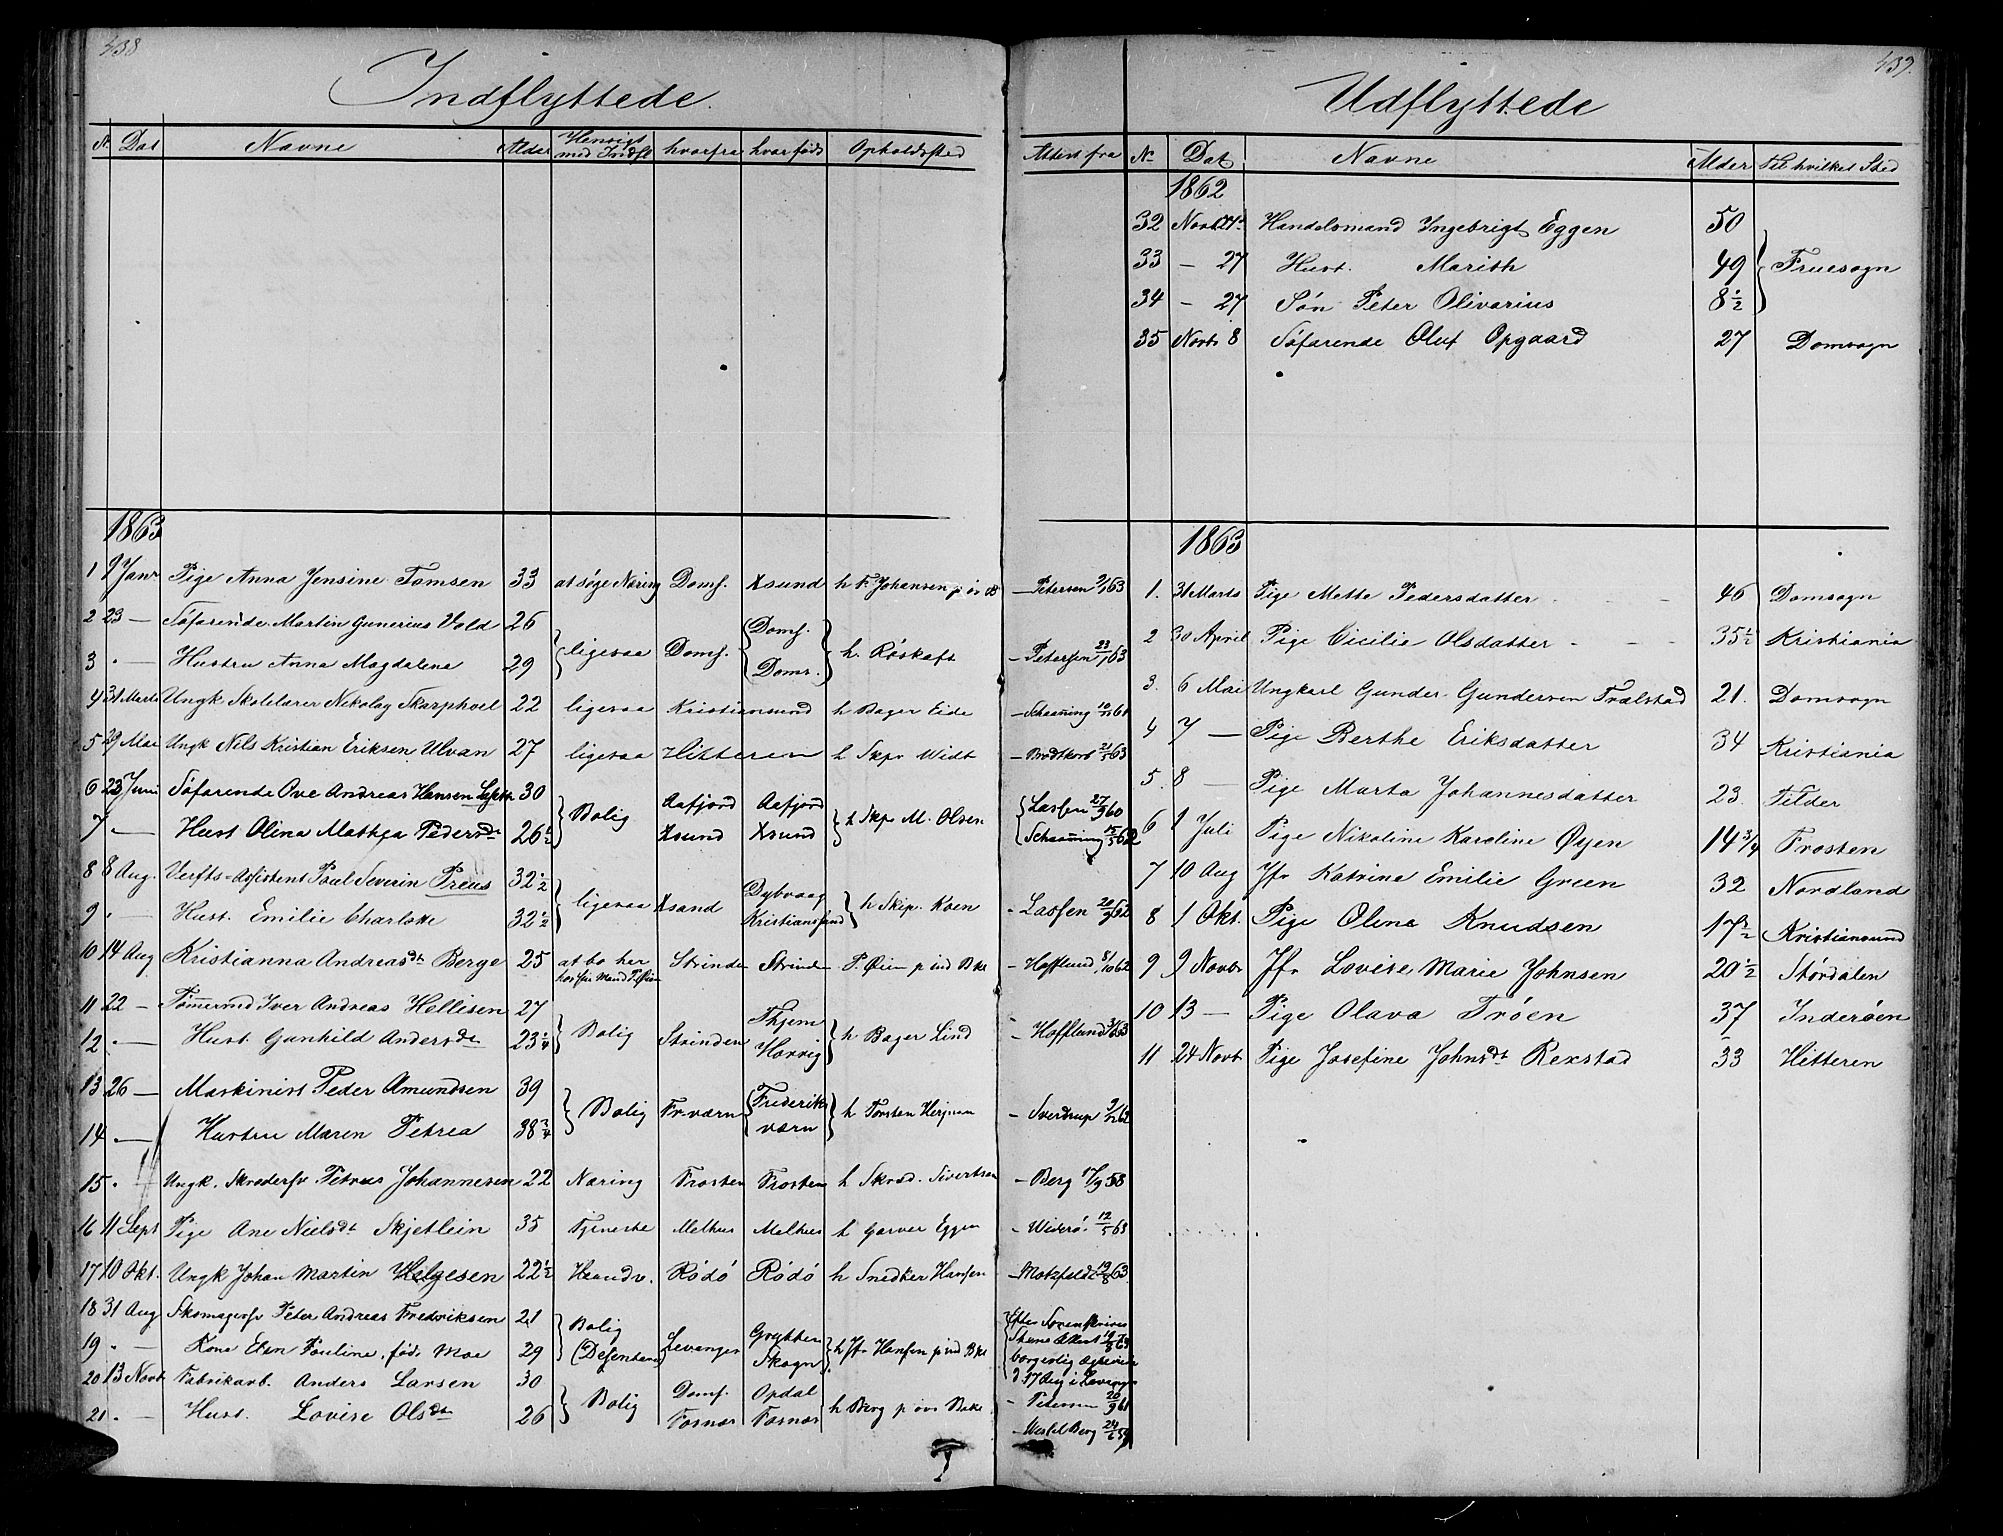 438
Indflyttede.
N. Dat Navne Alder Hensigt med Indfl hvorfra hvor født Opholdssted Attest fra
1863
1 9 Janr Pige Anna Jensine Tomsen 33 at søge Næring Domf. Xsund h F. Johansen p øv Bk – Petersen 9/1 63
2 23 — Søfarende Martin Gunerius Vold 26 ligesaa Domf. Domf. h. Røskaft – Petersen 22/1 63
3 . — Hustru Anna Magdalena 29 Doms.
4 31 Marts Ungk Skolelærer Nikolay Skarphol 22 ligesaa Kristiansund h Bager Eide – Schaaning
5 29 Mai Ungk Nils Kristian Eriksen Ulvan 27 ligesaa Hitteren h Skpr Widt – Brodtkorb 21/5 63
6 23 Juni Søfarende Ove Andreas Hansen 30 Bolig Aafjord Aafjord h Skpr M. Olsen Lassen 27/9 60
7 — Hust Olina Mathea Pedersdt 26½ Xsund Xsund Schaaning 15/5 62
8 8 Aug. Verfts-Assistent Paul Severin Preus 32½ ligesaa Xsand Dybvaag h Skip. Koen – Lassen 20/9 62
9 . — Hust. Emilie Charlotte 32½ Kristianssand
10 14 Aug Kristianna Andreasdt Berge 25 at bo her hos sin Mand T. Øien Strinde Strinde T. Øien p ind Bke – Hofflund 8/10 62
11 22 — Tømmermd Iver Andreas Hellisen 27 Bolig Strinden Thjem h Bager Lind – Hofflund
12 . — Hust. Gunhild Andersdt 23¼ Horvig
13 26 — Maskinist Peder Amundsen 39 Bolig Fr.værn Frederiks værn h Torsten – Sverdrup
14 . — Hustru Maren Petrea 38¾
15 . Ungk. Skrædersv Petrus Johannesen 22 Næring Frosten Frosten h Skræd. Sivertsen – Berg 17/9 58
16 11 Sept Pige Ane Nielsdt Skjetlein 35 Tjeneste Melhus Melhus h Garver Eggen – Widerø. 12/5 63
17 10 Okt. Ungk Johan Martin Helgesen 22½ Haandv. Rødø Rødø h Snedker Hansen – Motzfeldt 19/8 63
18 31 Aug Skomagersv Peter Andreas Fredriksen 21 Bolig (Desentere) Levanger Grytten h Jfr Hansen p ind Bke Efter Sorenskriver
19 . — Kone Elen Pauline, fød. Moe 29 Skogn borgerlig
20 13 Novb Fabrikarb. Anders Larsen 30 Bolig Domf. Opdal h Berg p øvr Bake – Petersen 20/9 61
21 . — Hust. Lovise Olsdt 26 Fosnæs Fosnæs – Wessel Berg 24/6 59
439.
Udflyttede
No Dat Navne Alder Til hvilket Sted
1862
32 Novb Handelsmand Ingebrigt Eggen 50 Fruesogn
33 — 27 Hust. Marith 49
34 — 27 Søn Peter Olivarius 8½
35 Novb 8 Søfarende Oluf Opgaard 27 Domsogn
1863
1. 31 Marts Pige Mette Pedersdatter 46 Domsogn
2 30 April Pige Cicilia Olsdatter 35½ Kristiania
3. 6 Mai Ungkarl Gunder Gundersen Trælstad 21. Domsogn
4 7 — Pige Berthe Eriksdatter 34 Kristiania
5. 8 — Pige Marta Johannesdatter 23. Tilder
6 1 Juli Pige Nikoline Karoline Øyen 14 3/4 Frosten
7 10 Aug Jfr Katrine Emilie Green 32 Nordland
8 1 Okt. Pige Oline Knudsen 17½ Kristiansund
9 9 Novbr Jfr Lovise Marie Johnsen 20½ Størdalen
10 13 — Pige Olava Trøen 37 Inderøen
11 24 Novb Pige Josefine Johnsdt Rexstad 33 Hitteren